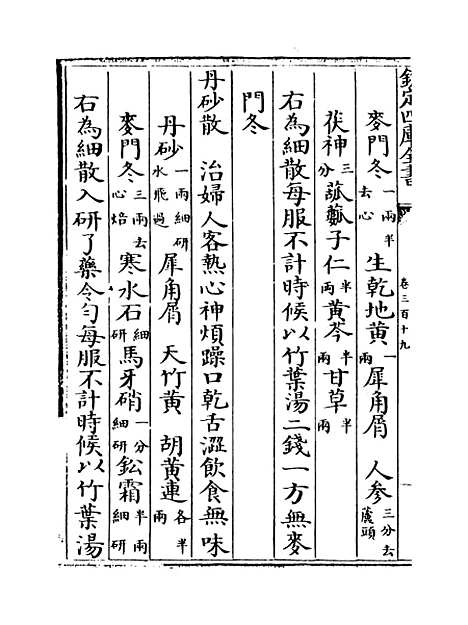 欽定四庫全書
卷三百十九
麥門冬一兩半去心 生乾地黃一兩 犀角屑 人參三分去蘆頭
茯神三分 子仁半兩 黃芩半兩 甘草半兩
右為細散每服不計時候以竹葉湯二錢一方無麥
門冬
丹砂散 治婦人客熱心神煩躁口乾舌澁飲食無味
丹砂一兩細研水飛過 犀角屑 天竹黃 胡黃連各半兩
麥門冬三兩去心焙 寒水石細研 馬牙硝一分細研 鈆霜半兩細研
右為細散入研了藥令勻每服不計時候以竹葉湯